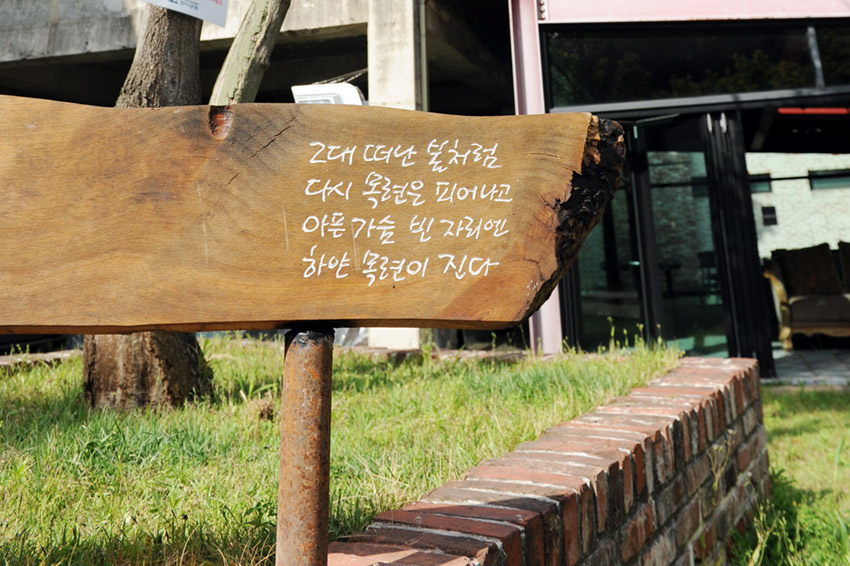 그대 떠난 봄처럼
다시 목련은 피어나고
아픈 가슴 빈 자리엔
하얀 목련이 진다